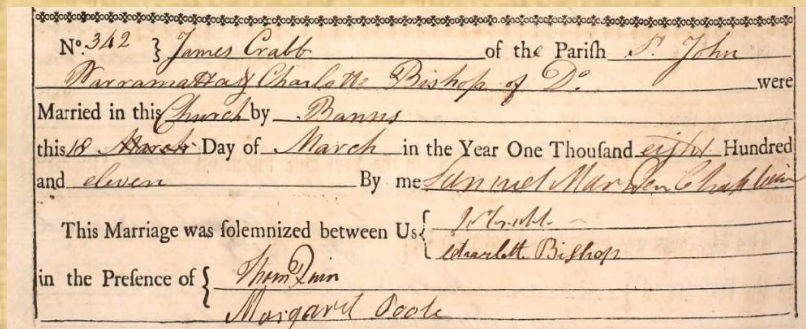 No. 342 } James Crabb of the Parish St. John
Parramatta & Charlotte Bishop of Do. were
Married in this Church by Banns
this 18 March Day of March in the Year One Thousand eight Hundred
and eleven By me Samuel Marsden Chaplain
This Marriage was solemnized between Us {
Charlott. Bishop
in the Presence of { Thom Quin
Margaret Poole